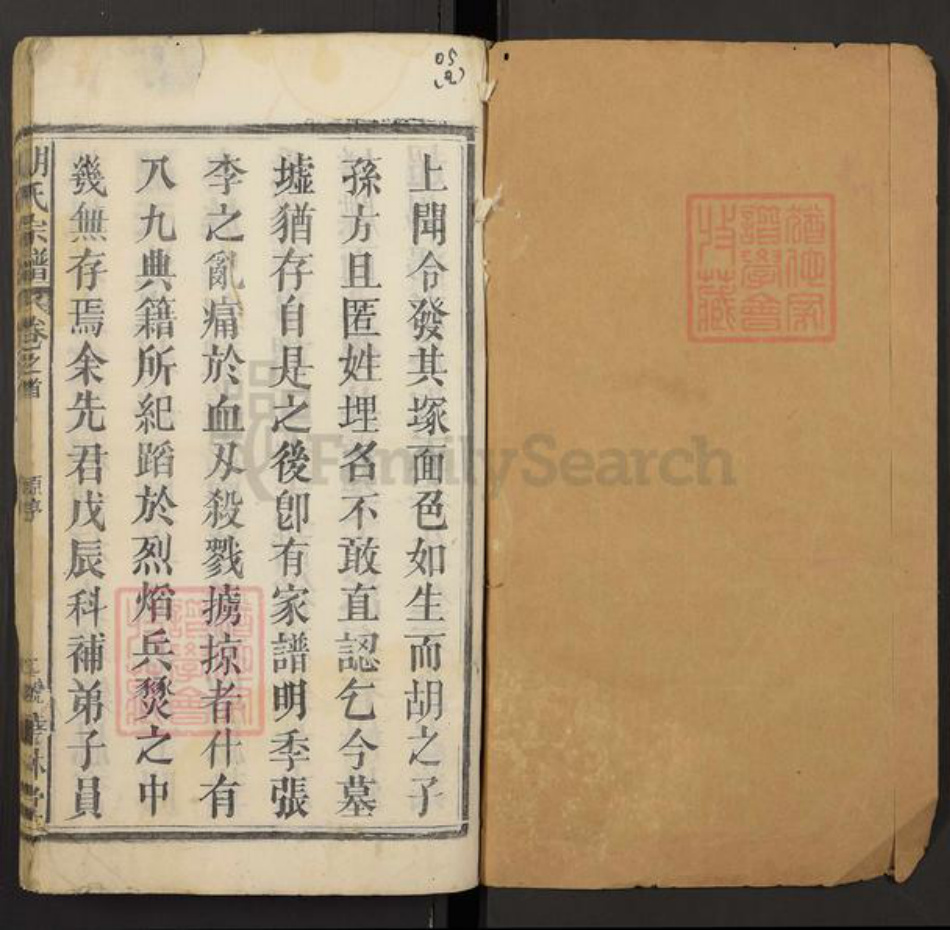 上聞令發其塚面色如生而胡之子
孫方且匿姓埋名不敢直認乞今墓
墟猶存自是之後卽有家譜明季張
李之亂痛於血刃殺戮擄掠者什有
八九典籍所紀蹈於烈熖兵燹之中
幾無存焉余先君戊辰科補弟子員
胡氏宗譜
卷之首
原序
05
(a)
FamilySearch
譜學會
收藏